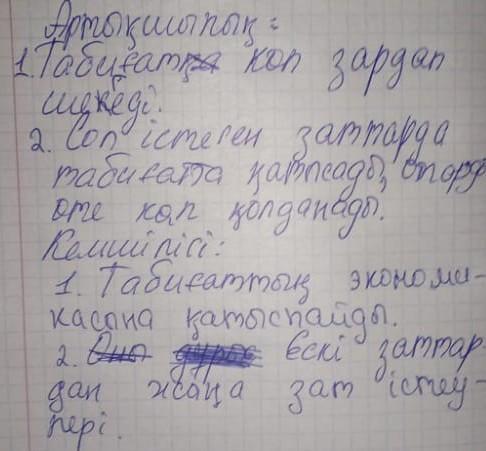 Артықшылық:
1. Табиғат көп зардап
шекеді.
2. Сол істеген заттарда
табиғатта қатысады, оларды
өте көп қолданады.
Кемшілігі:
1. Табиғаттың экономи-
касына қатыспайды.
2. Ескі заттар-
дан жаңа зат істеу-
лері.